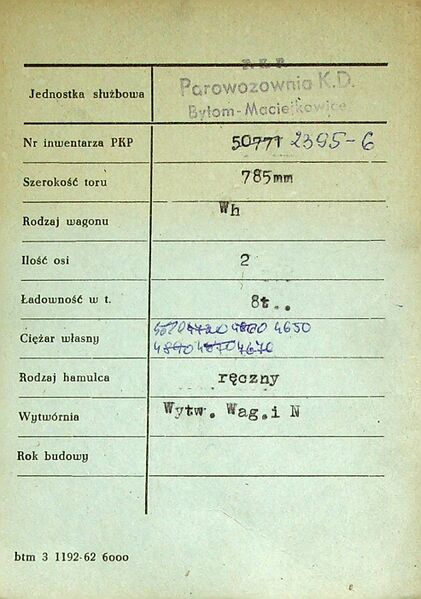 P. K. P.
Jednostka służbowa Parowozownia K.D.
Bytom-Maciejkowice
Nr inwentarza PKP 50771 2395-6
Szerokość toru 785mm
Rodzaj wagonu Wh
Ilość osi 2
Ładowność w t. 8t..
Ciężar własny 4720 4650
4890 4670
Rodzaj hamulca ręczny
Wytwórnia Wytw. Wag. i N
Rok budowy
btm 3 1192-62 6000